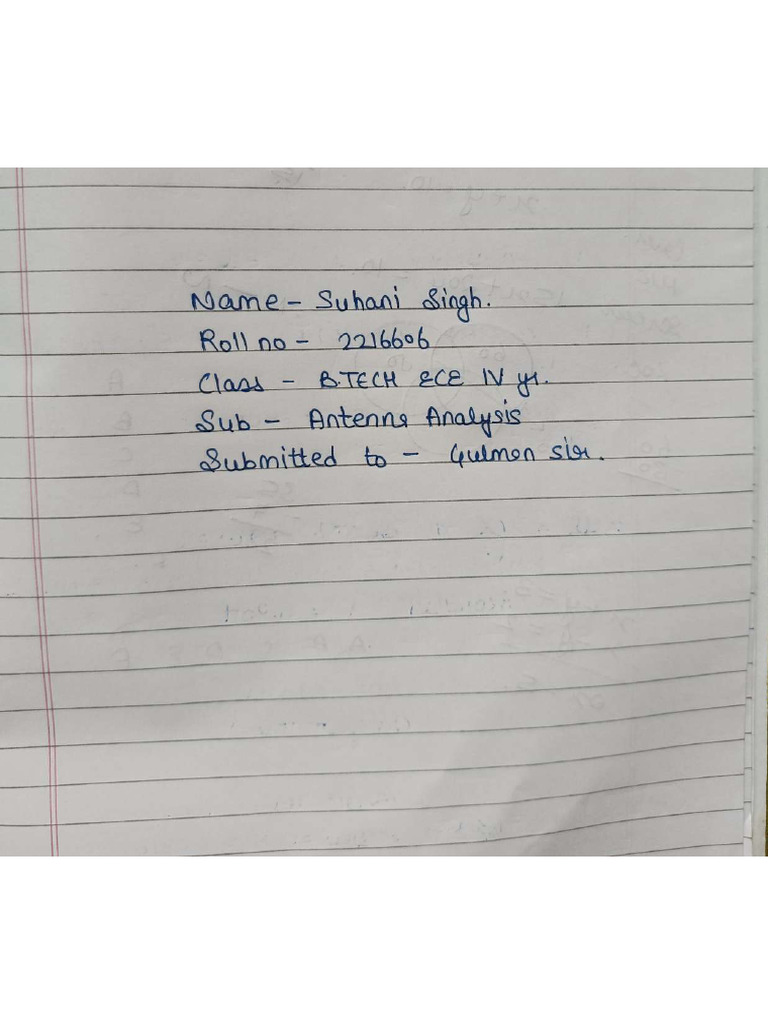 Name - Suhani Singh.
Roll no - 2216606
Class - B.TECH ECE IV yr.
Sub - Antenna Analysis
Submitted to - Gulmon sir.